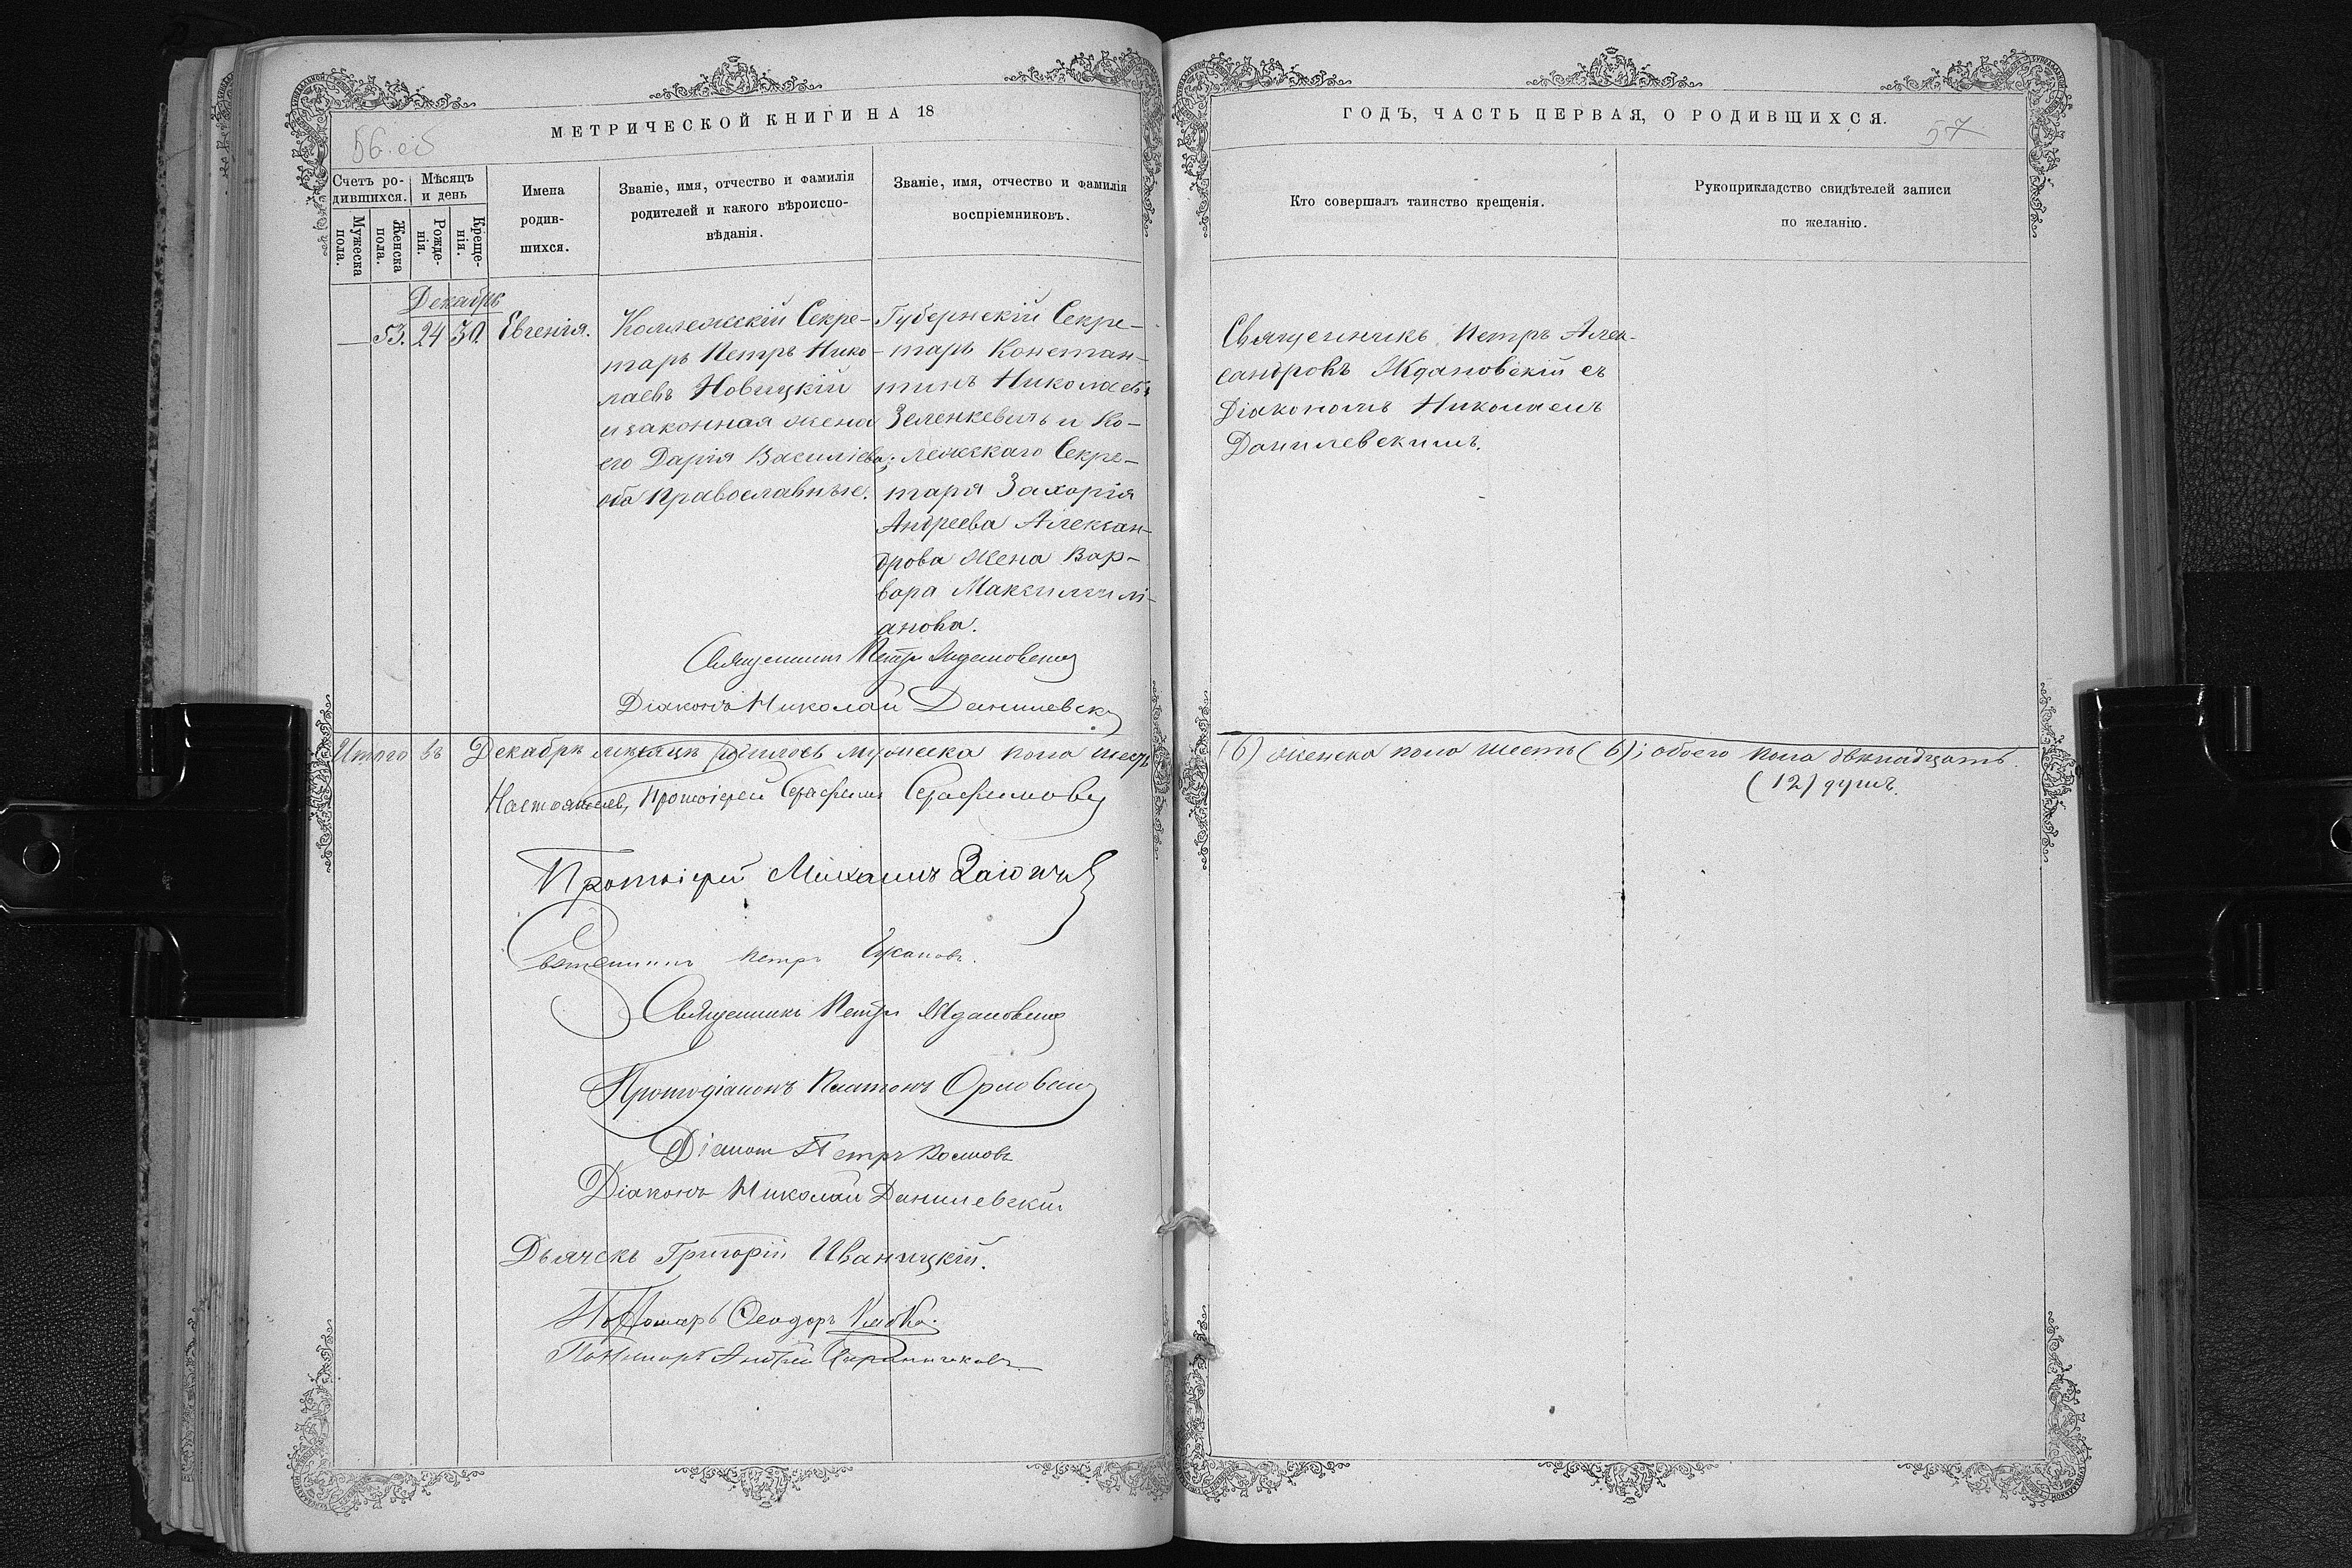 56 об
МЕТРИЧЕСКОЙ КНИГИ НА 18
Счетъ ро-
дившихся.
Мужеска
пола.
Женска
пола.
Мѣсяцъ
и день
Рожде-
нія.
Креще-
нія.
Имена
родив-
шихся.
Званіе, имя, отчество и фамилія
родителей и какого вѣроиспо-
вѣданія.
Званіе, имя, отчество и фамилія
воспріемниковъ.
Декабрь
— 53. 24 30. Евгенія.
Коллежскій Секре-
тарь Петръ Нико-
лаевъ Новицкій
и законная жена
его Дарія Василіева;
оба православные.
Губернскій Секре-
тарь Констан-
тинъ Николаевъ
Зеленкевичъ и Ко-
лежскаго Секре-
таря Захарія
Андреева Алексан-
дрова жена Вар-
вара Максимилі-
анова.
Священникъ Петръ Ждановскій
Діаконъ Николай Данилевскій
Итого въ Декабрѣ мѣсяцѣ родилось мужеска пола шесть
Настоятель, Протоіерей Серафимъ Серафимовъ
Протоіерей Михаилъ
Священникъ Петръ
Священникъ Петръ Ждановскій
Протодіаконъ Платонъ Орловскій
Діаконъ Петръ
Діаконъ Николай Данилевскій
Дьячекъ Григорій Иваницкій.
Пономарь Феодоръ
Пономарь Андрей
ГОДЪ, ЧАСТЬ ПЕРВАЯ, О РОДИВШИХСЯ.
57
Кто совершалъ таинство крещенія.
Рукоприкладство свидѣтелей записи
по желанію.
Священникъ Петръ Алек-
сандровъ Ждановскій съ
Діакономъ Николаемъ
Данилевскимъ.
(6) женска пола шесть (6); обоего пола двѣнадцать
(12) душъ.